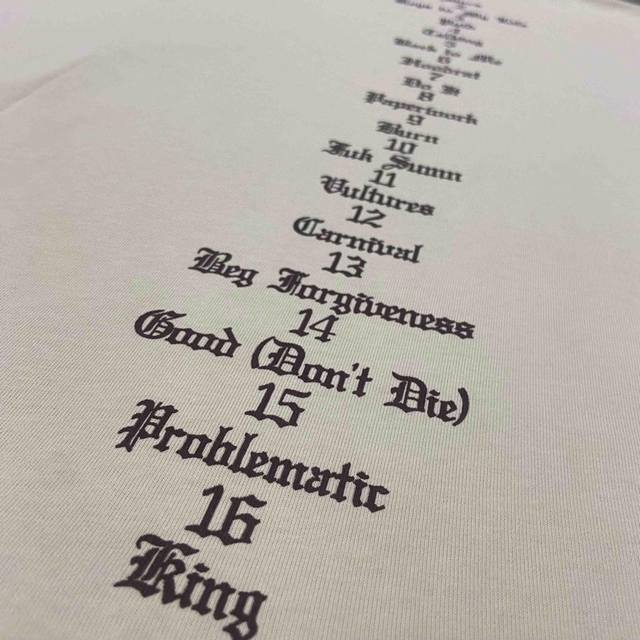 Keys to My Life
3
Paid
4
Talking
5
Back to Me
6
Hoodrat
7
Do It
8
Paperwork
9
Burn
10
Fuk Sumn
11
Vultures
12
Carnival
13
Beg Forgiveness
14
Good (Don't Die)
15
Problematic
16
King